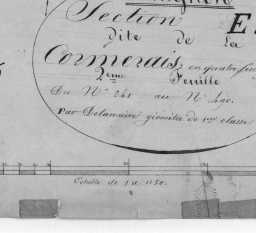 Section E
dite de la
Cormerais, en quatre feu
2ème Feuille
Du N° 261 au N° 490.
Par Delamaire géomètre de 1ère classe
Echelle de 1 à 1250.